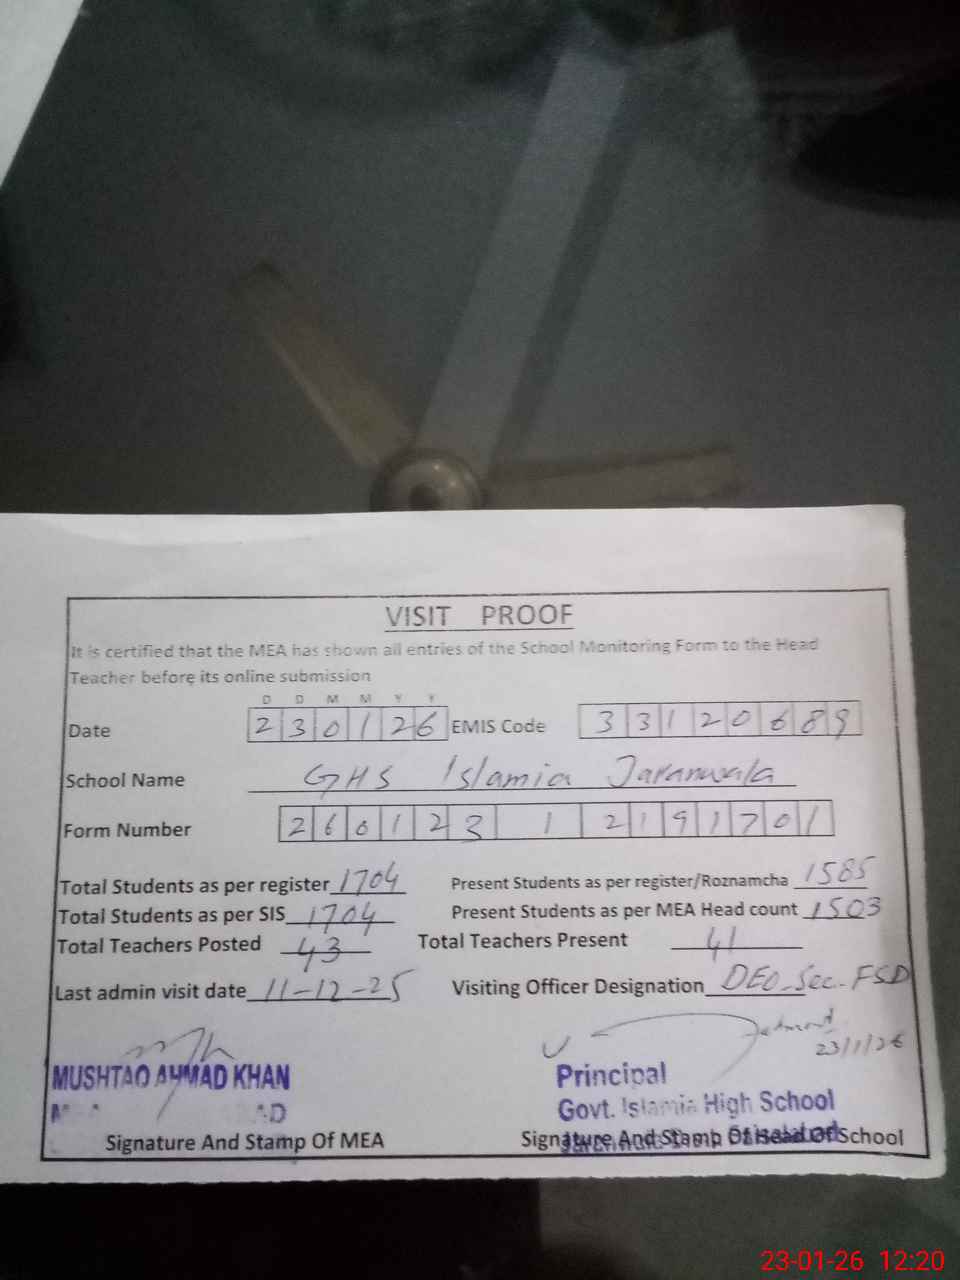 VISIT PROOF
It is certified that the MEA has shown all entries of the School Monitoring Form to the Head
Teacher before its online submission
D D M M Y Y
Date 230126 EMIS Code 33120689
School Name GHS Islamia Jaranwala
Form Number 260123 1 2191701
Total Students as per register 1704 Present Students as per register/Roznamcha 1585
Total Students as per SIS 1704 Present Students as per MEA Head count 1503
Total Teachers Posted 43 Total Teachers Present 41
Last admin visit date 11-12-25 Visiting Officer Designation DEO-Sec-FSD
23/1/26
MUSHTAQ AHMAD KHAN Principal
Govt. Islamia High School
Signature And Stamp Of MEA Signature And Stamp Of Head Of School
23-01-26 12:20